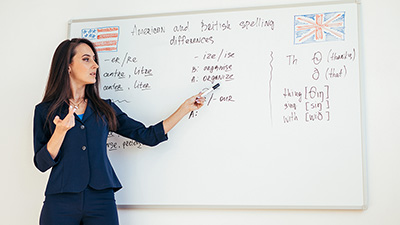 American and British spelling
differences
- er / re
centre, Litre
center, Liter
- ize / ise
B: organise
A: organize
/ - our
A:
Th
θ (thanks)
ð (that)
thing [θiŋ]
sing [siŋ]
with [wið]